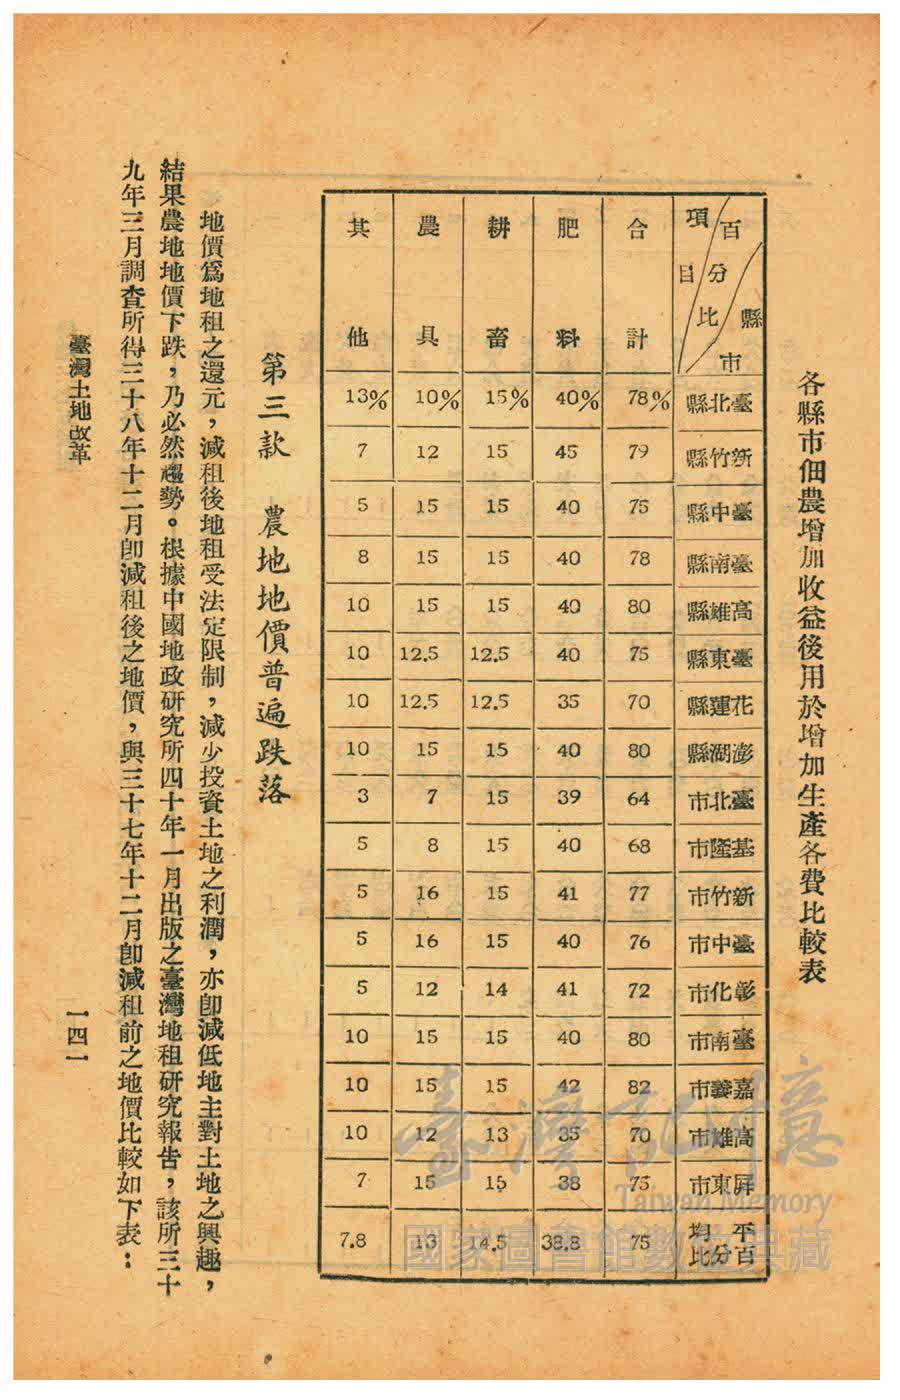 各縣市佃農增加收益後用於增加生產各費比較表
百分比 項目 縣市 合計 肥料 耕畜 農具 其他
臺北縣 78% 40% 15% 10% 13%
新竹縣 79 45 15 12 7
臺中縣 75 40 15 15 5
臺南縣 78 40 15 15 8
高雄縣 80 40 15 15 10
臺東縣 75 40 12.5 12.5 10
花蓮縣 70 35 12.5 12.5 10
澎湖縣 80 40 15 15 10
臺北市 64 39 15 7 3
基隆市 68 40 15 8 5
新竹市 77 41 15 16 5
臺中市 76 40 15 16 5
彰化市 72 41 14 12 5
臺南市 80 40 15 15 10
嘉義市 82 42 15 15 10
高雄市 70 35 13 12 10
屏東市 75 38 15 15 7
平均百分比 75 38.8 14.5 13 7.8
第三款 農地地價普遍跌落
地價爲地租之還元，減租後地租受法定限制，減少投資土地之利潤，亦卽減低地主對土地之興趣，
結果農地地價下跌，乃必然趨勢。根據中國地政研究所四十年一月出版之臺灣地租研究報告，該所三十
九年三月調查所得三十八年十二月卽減租後之地價，與三十七年十二月卽減租前之地價比較如下表：
臺灣土地改革
一四一
臺灣記憶
Taiwan Memory
國家圖書館數位典藏